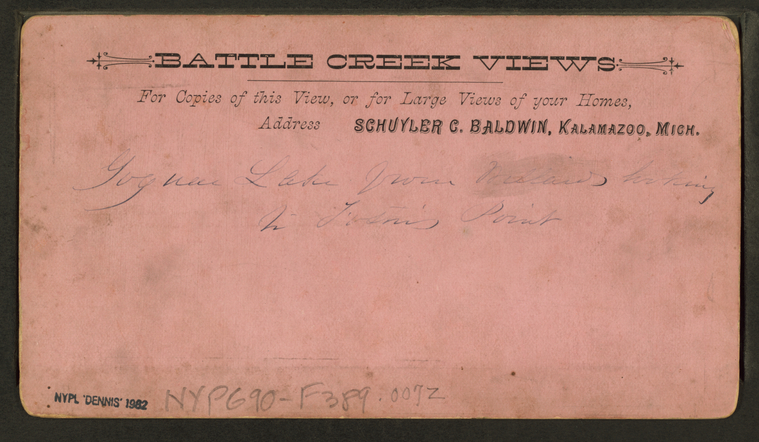 BATTLE CREEK VIEWS
For Copies of this View, or for Large Views of your Homes,
Address SCHUYLER C. BALDWIN, KALAMAZOO, MICH.
Goguac Lake from looking
Point
NYPL 'DENNIS' 1982 NYPG90-F389.007Z